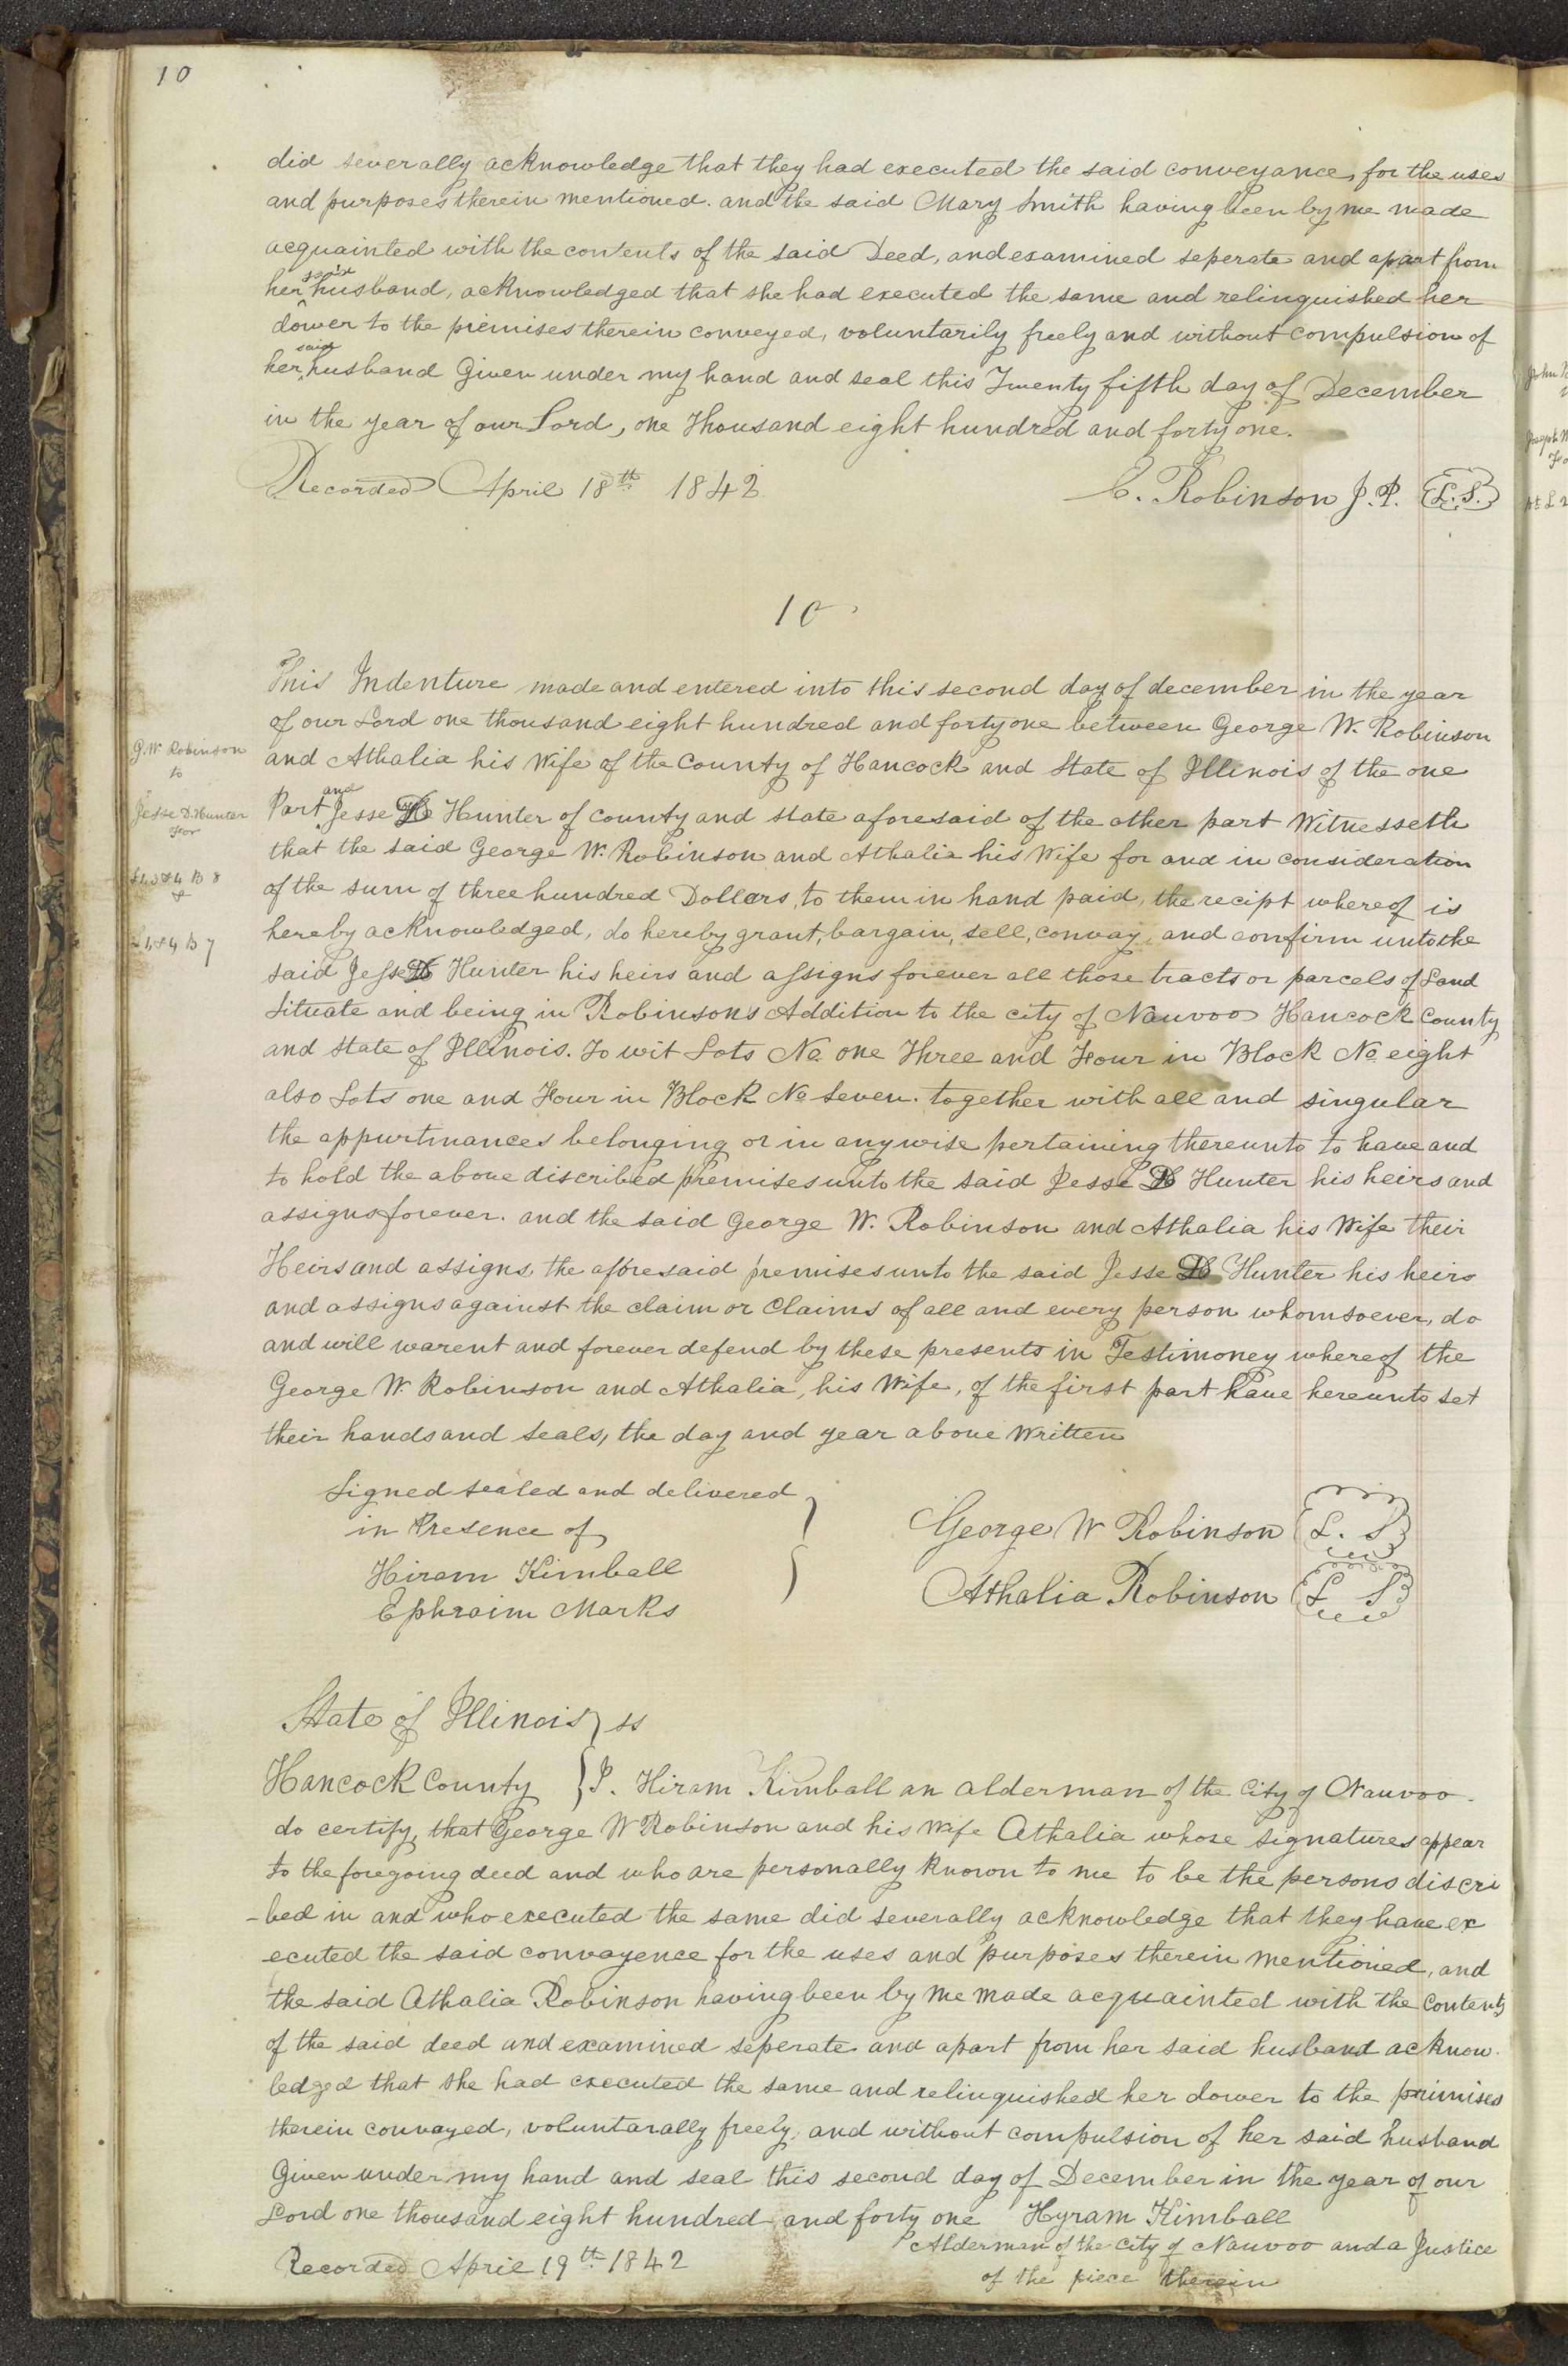 10
did severally acknowledge that they had executed the said conveyance, for the uses
and purposes therein mentioned. and the said Mary Smith having been by me made
acquainted with the contents of the said Deed, and examined seperate and apart from
her said husband, acknowledged that she had executed the same and relinquished her
dower to the premises therein conveyed, voluntarily freely and without compulsion of
her said husband Given under my hand and seal this Twenty fifth day of December
in the year of our Lord, one Thousand eight hundred and forty one.
Recorded April 18th 1842
E. Robinson J. P. L.S.
10
This Indenture made and entered into this second day of december in the year
of our Lord one thousand eight hundred and forty one between George W. Robinson
and Athalia his Wife of the County of Hancock and State of Illinois of the one
Part and Jesse D Hunter of county and state aforesaid of the other part Witnesseth
that the said George W. Robinson and Athalia his Wife for and in consideration
of the sum of three hundred Dollars, to them in hand paid, the recipt whereof is
hereby acknowledged, do hereby grant, bargain, sell, convay, and confirm unto the
said Jesse D Hunter his heirs and assigns forever all those tracts or parcels of Land
Situate and being in Robinsons Addition to the city of Nauvoo Hancock County
and State of Illinois. To wit Lots No. one Three and Four in Block No. eight
also Lots one and Four in Block No Seven. together with all and singular
the appurtinances belonging or in anywise pertaining thereunto to have and
to hold the above discribed premises unto the said Jesse D Hunter his heirs and
assigns forever. and the said George W. Robinson and Athalia his Wife their
Heirs and assigns, the aforesaid premises unto the said Jesse D Hunter his heirs
and assigns against the claim or Claims of all and every person whomsoever, do
and will warent and forever defend by these presents in Testimoney whereof the
George W. Robinson and Athalia, his Wife, of the first part have hereunto set
their hands and seals, the day and year above Written
G. W. Robinson
to
Jesse D. Hunter
for
L 1, 3 & 4 B 8
&
L 1, & 4 B 7
Signed sealed and delivered
in Presence of
Hiram Kimball
Ephraim Marks
George W Robinson L. S
Athalia Robinson L S
State of Illinois ss
Hancock County I. Hiram Kimball an alderman of the City of Nauvoo.
do certify, that George W Robinson and his Wife Athalia whose signatures appear
to the foregoing deed and who are personally known to me to be the persons discri
-bed in and who executed the same did severally acknowledge that they have ex
ecuted the said convayence for the uses and purposes therein mentioned, and
the said Athalia Robinson having been by me made acquainted with the contents
of the said deed and examined seperate and apart from her said husband acknow-
ledged that she had executed the same and relinquished her dower to the primises
therein convayed, voluntarally freely, and without compulsion of her said husband
Given under my hand and seal this second day of December in the year of our
Lord one thousand eight hundred and forty one Hyram Kimball
Alderman of the City of Nauvoo and a Justice
of the piece therein
Recorded April 19th 1842